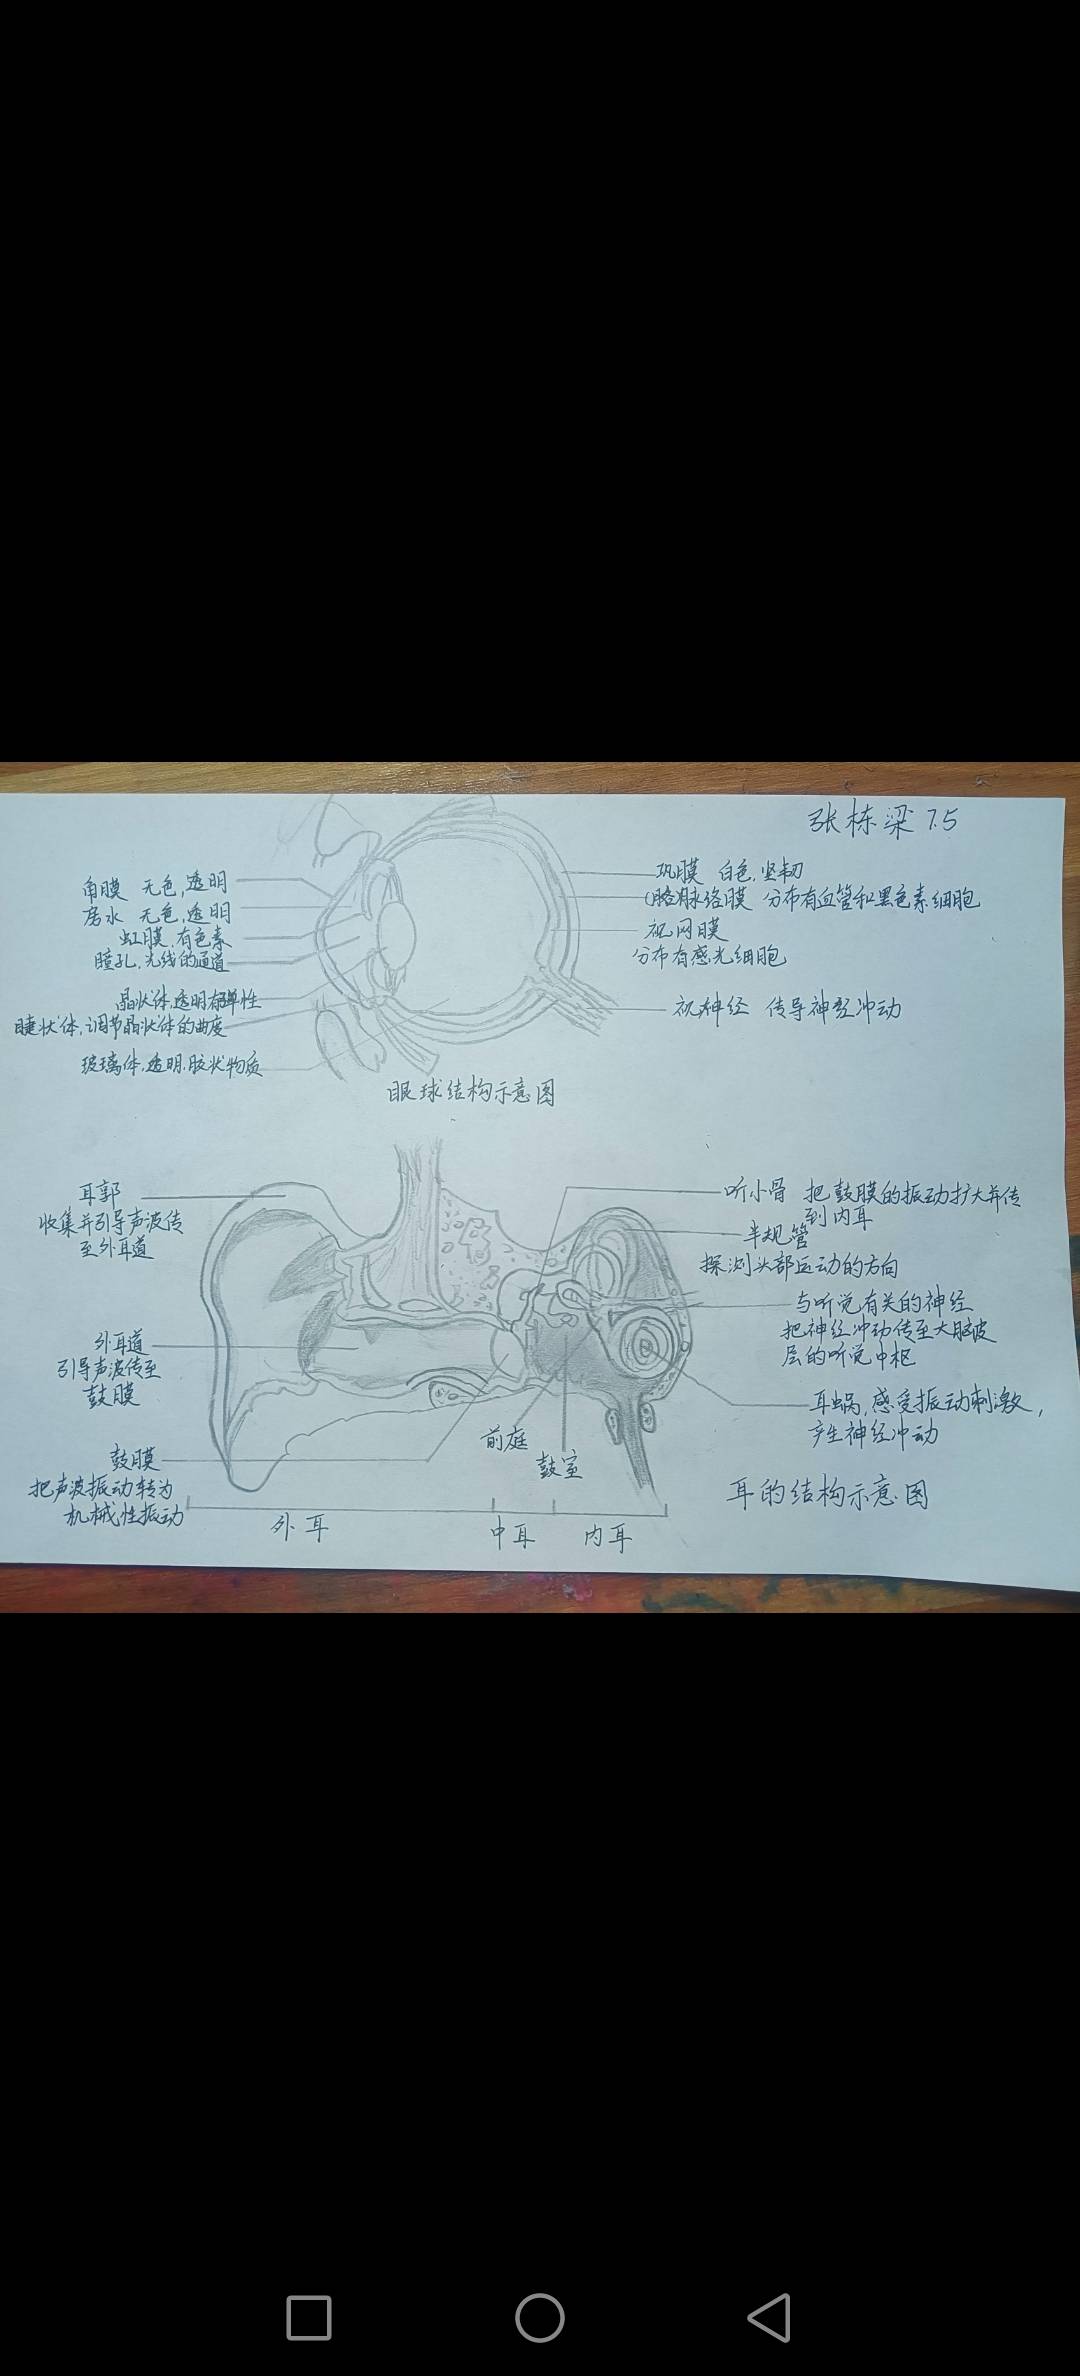 张栋梁 7.5
角膜 无色,透明
房水 无色,透明
虹膜,有色素
瞳孔,光线的通道
晶状体,透明有弹性
睫状体,调节晶状体的曲度
玻璃体,透明,胶状物质
巩膜 白色,坚韧
脉络膜 分布有血管和黑色素细胞
视网膜
分布有感光细胞
视神经 传导神经冲动
眼球结构示意图
耳郭
收集并引导声波传
至外耳道
外耳道
引导声波传至
鼓膜
鼓膜
把声波振动转为
机械性振动
听小骨 把鼓膜的振动扩大并传
到内耳
半规管
探测头部运动的方向
与听觉有关的神经
把神经冲动传至大脑皮
层的听觉中枢
耳蜗,感受振动刺激,
产生神经冲动
前庭
鼓室
外耳
中耳
内耳
耳的结构示意图